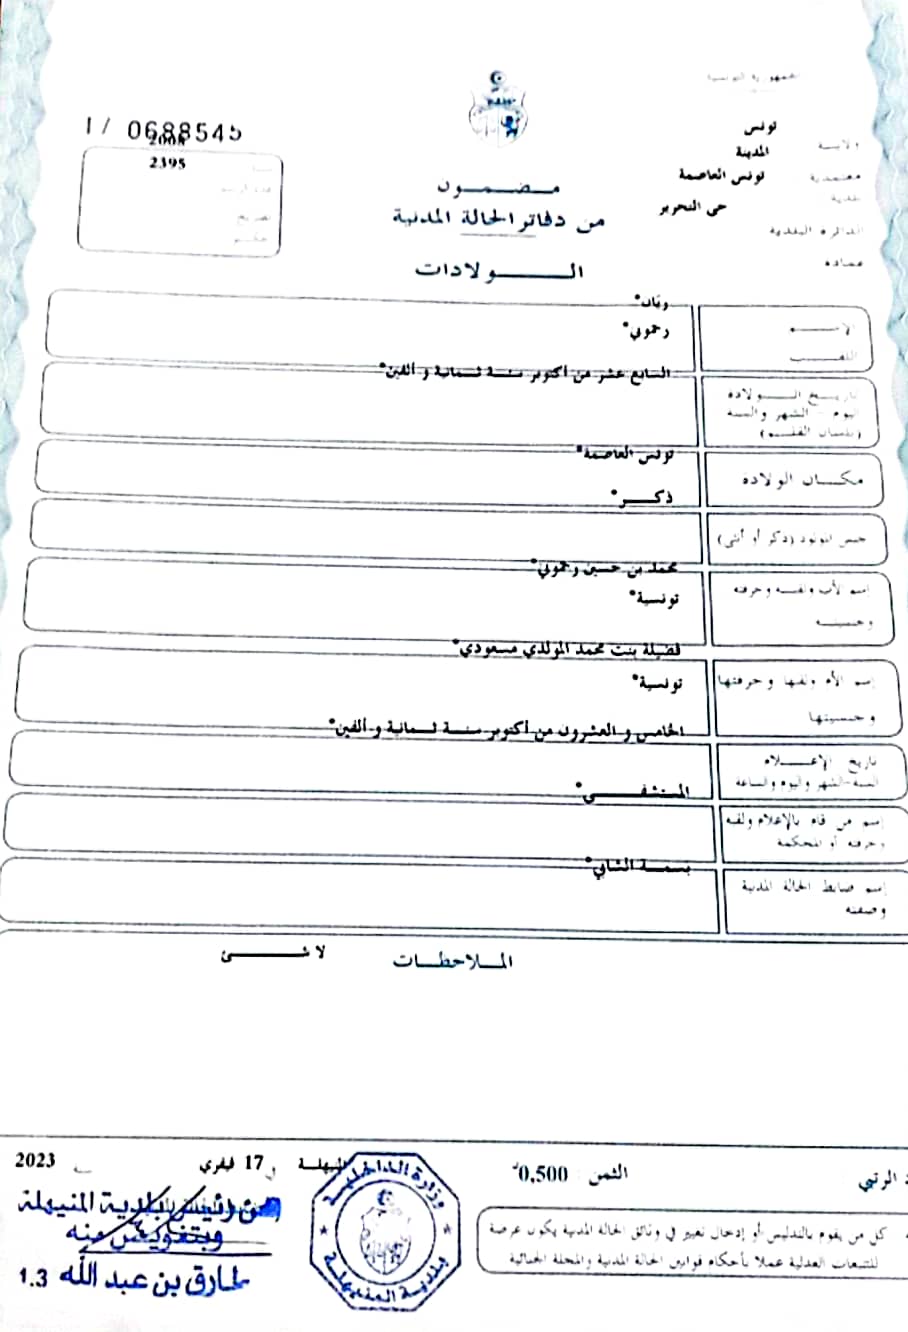 الجمهورية التونسية
I / 0688545
2008
2395
سنة
عدد الرسم
تصريح
حكم
ولاية تونس
معتمدية المدينة
بلدية تونس العاصمة
الدائرة البلدية حي التحرير
عمادة
مضمون
من دفاتر الحالة المدنية
الولادات
الإسم
ريان*
اللقب
رحموني*
تاريخ الولادة
اليوم - الشهر والسنة
(بلسان القلم)
السابع عشر من أكتوبر سنة ثمانية و ألفين*
مكان الولادة
تونس العاصمة*
جنس المولود (ذكر أو أنثى)
ذكر*
إسم الأب ولقبه وحرفته
وجنسيته
محمد بن حسين رحموني*
تونسية*
إسم الأم ولقبها وحرفتها
وجنسيتها
فضيلة بنت محمد المولدي مسعودي*
تونسية*
تاريخ الإعلام
السنة-الشهر واليوم والساعة
الخامس و العشرون من أكتوبر سنة ثمانية و ألفين*
إسم من قام بالإعلام ولقبه
وحرفته أو المحكمة
المستشفى*
إسم ضابط الحالة المدنية
وصفته
بسمة الشابي*
الملاحظات
لا شئ
الرتبي
الثمن : 0,500
المنيهلة في 17 فيفري سنة 2023
كل من يقوم بالتدليس أو إدخال تغيير في وثائق الحالة المدنية يكون عرضة
للتتبعات العدلية عملا بأحكام قوانين الحالة المدنية والمجلة الجنائية
وزارة الداخلية
بلدية المنيهلة
عن رئيس بلدية المنيهلة
وبتفويض منه
طارق بن عبد الله 1.3